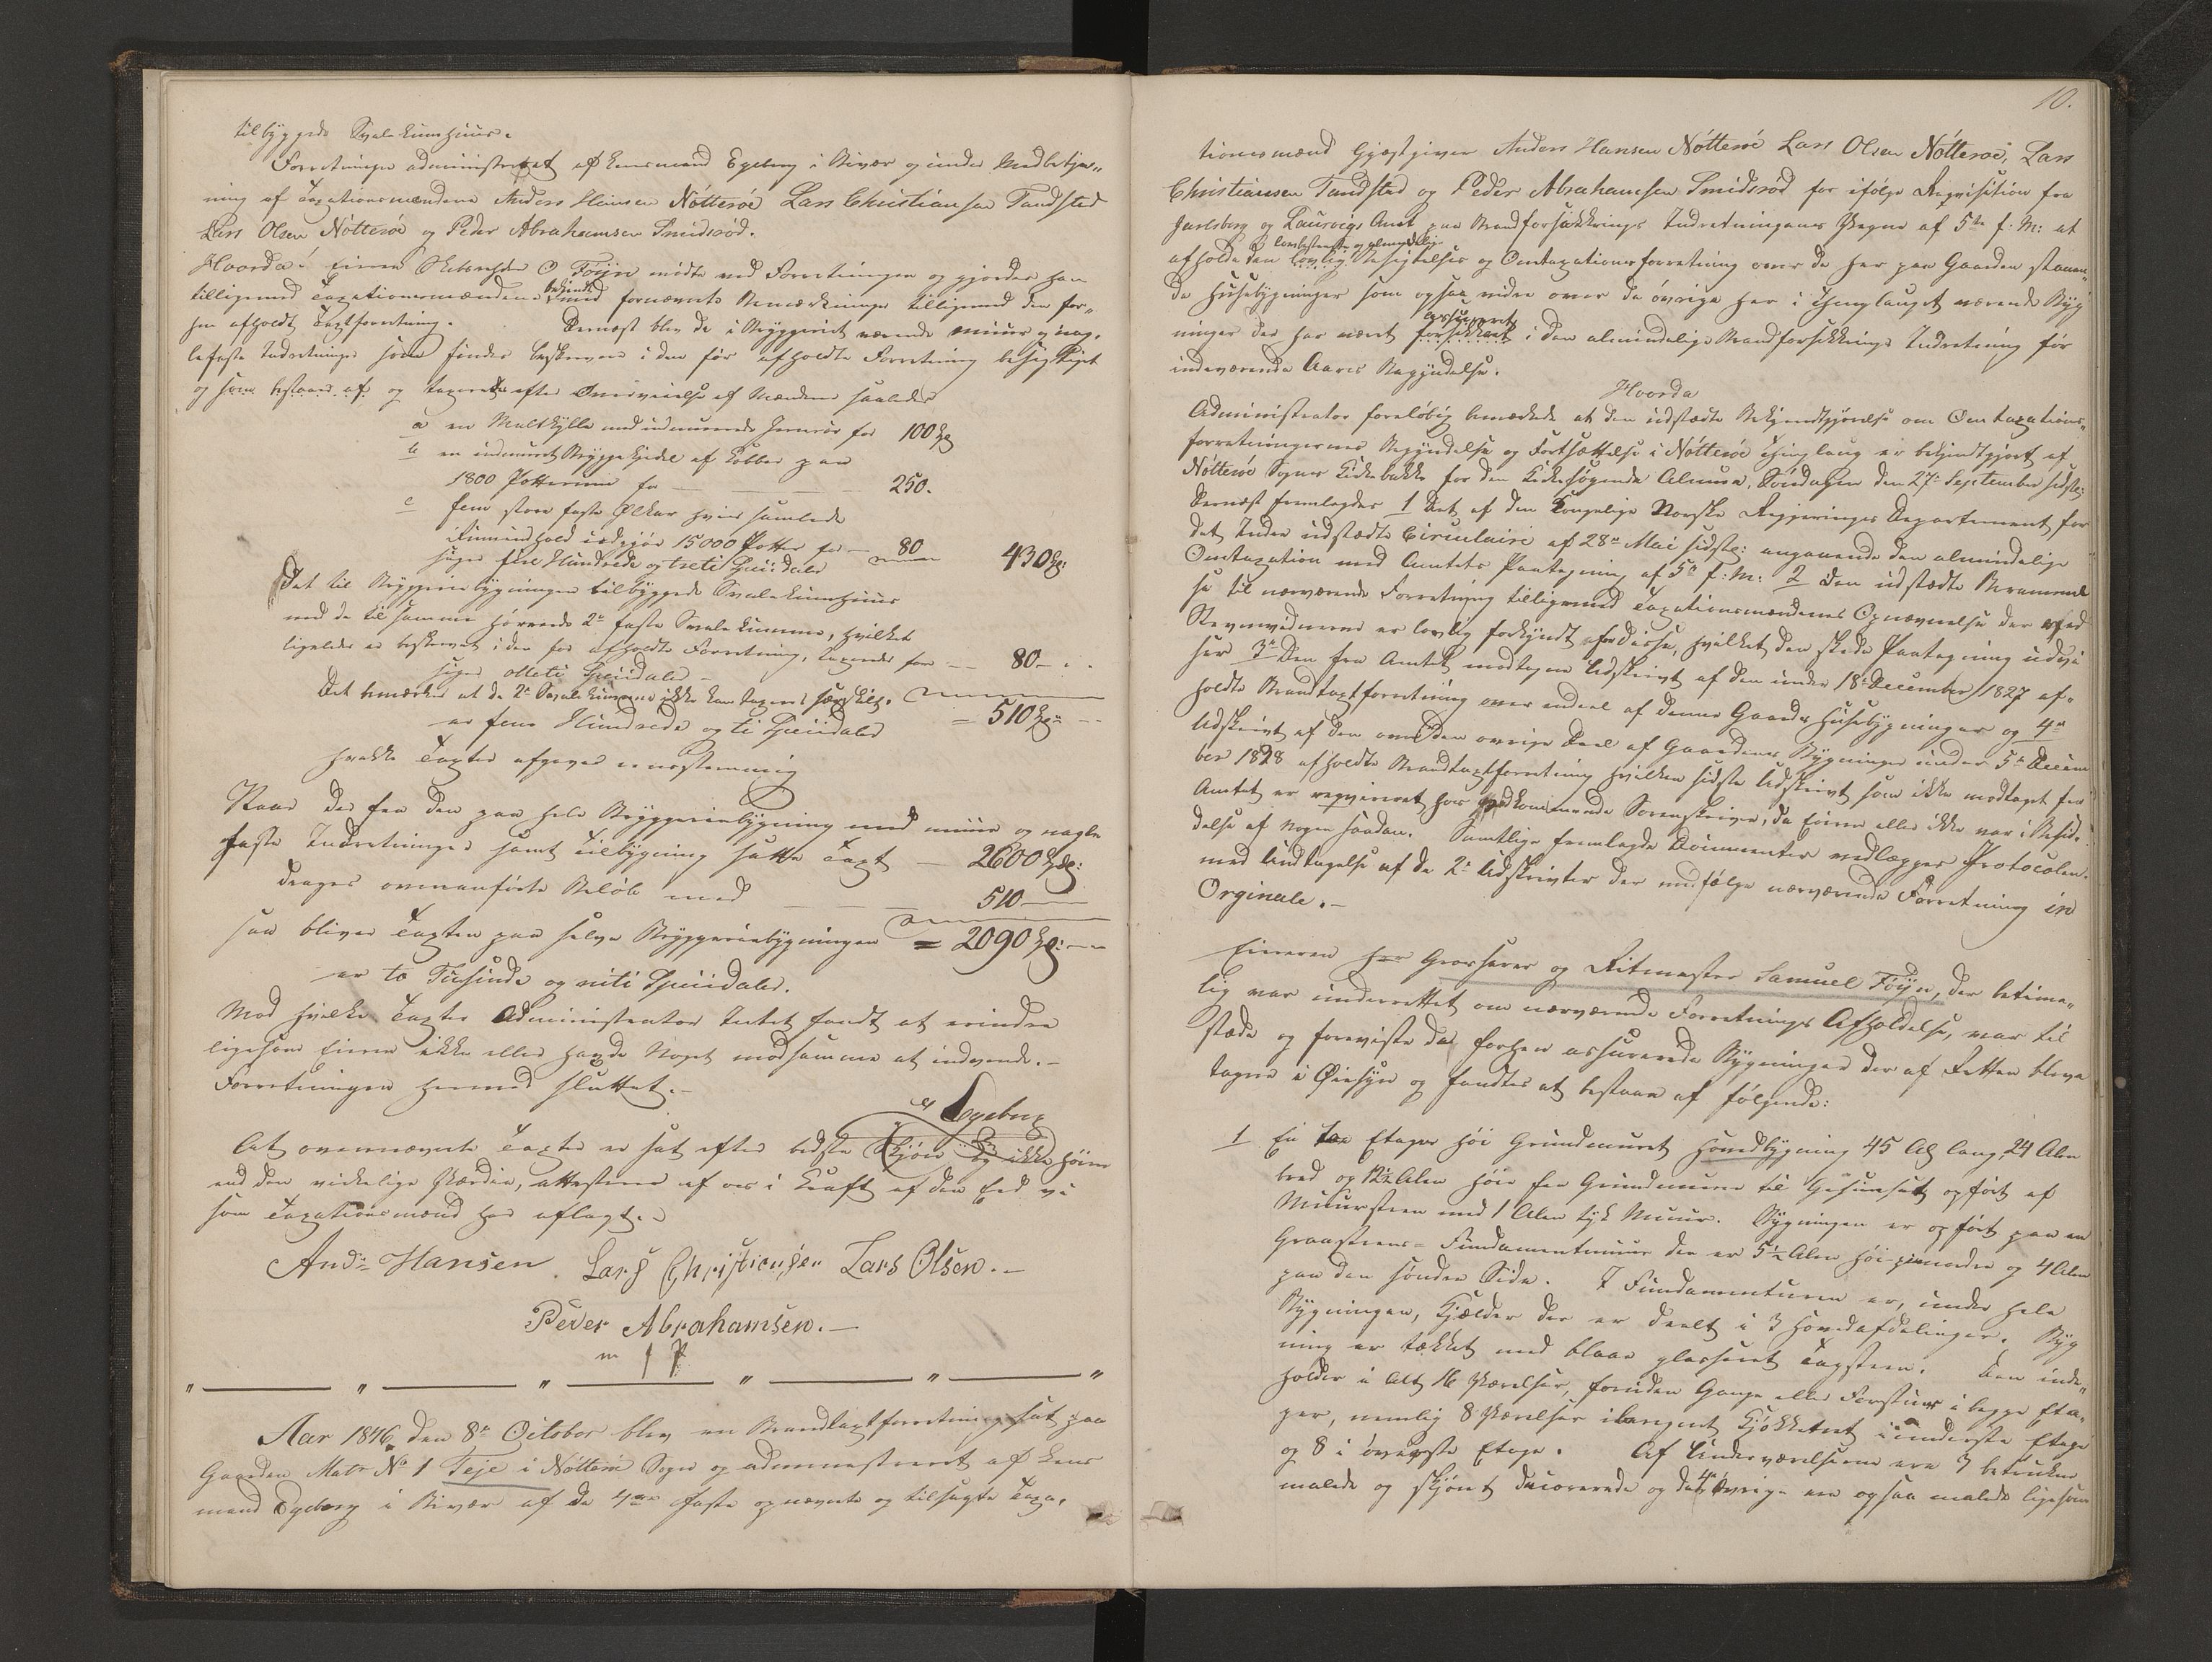 tilbyggede Svalekumhuus.
Forretningen administreret af Lensmand Egeberg i Bivær og under Medbetje„
ning af Taxationsmændene Anders Hansen Nötteröe Lars Christiansen Tandsted
Lars Olsen Nötteröe og Peder Abrahamsen Smidsröd.
Hvorda! Eieren Skibsrheder O Föyn mödte ved Forretningen og gjordes han
tilligemed Taxationsmændene bekjendt med fornævnte Bemærkninger tilligemed den for„
hen afholdt Taxtforretning. Dernæst blev de i Bryggeriet værende muur og nag„
lefaste Indretninger som findes beskrevne i den før afholdte Forretning besigtiget
og som bestaaer af og taxerede efter Overveielse af Mændene saaledes
a en Maltkjølle med indmurede Jernrör for 100 Spd
b en indmuret Bryggekjedel af Kobber paa
1800 Potterum for 250.
c fem store faste Ølkar hvis samlede
Ruminhold udgjör 15000 Potter for 80
siger fire Hundrede og treti Speciedaler 430 Spd:
Det til Bryggeriebygningen tilbyggede Svalekumhuus
med de til samme hörende 2de faste Svalekumme, hvilket
ligeledes er beskrevet i den før afholdte Forretning, taxeredes for — 80 — . .
siger otteti Speciedaler —
Det bemærkes at de 2de Svalekumme ikke kan taxeres særskilt.
er fem Hundrede og ti Speciedaler = 510 Spd
hvilke Taxter afgaves eenstemmig
Naar der fra den paa hele Bryggeriebygning med muur og nagle
faste Indretninger samt Tilbygning satte Taxt — 2600 Spd:
drages ovenanförte Belöb med 510
saa bliver Taxten paa selve Bryggeriebygningen = 2090 Spd:
er to Tusinde og niti Speciedaler.
Mod hvilke Taxter Administrator Intet fandt at erindre
ligesom Eieren ikke eller havde Noget mod samme at indvende. —
Forretningen hermed sluttet. —
Egeberg
At ovennævnte Taxter er sat efter bedste Skjön og ikke höiere
end den virkelige Værdie, attesteres af os i Kraft af den Eed vi
som Taxationsmænd har aflagt.
And: Hansen. Lars Christiensen Lars Olsen. —
Peder Abrahamsen. —
m f P
Aar 1846 den 8de October blev en Brandtaxtforretning sat paa
Gaarden Matr No 1 Teje i Nötteröe Sogn og administreret af Lens
mand Egeberg i Bivær af de 4re faste opnævnte og tilsagte Taxa„
10.
tionsmænd Gjæstgiver Anders Hansen Nötteröe Lars Olsen Nötteröe, Lars
Christiansen Tandsted og Peder Abrahamsen Smidsröd for ifölge Reqvisition fra
Jarlsberg og Laurvigs Amt paa Brandforsikkrings Indretningens Vegne af 5te f. M: at
lovbestemte og almindelig
afholde den lovlig Besigtelses og Omtaxationsforretning over de her paa Gaarden staaen„
de Huusebygninger som ogsaa videre over de övrige her i Thinglauget værende Byg
assureret
ninger der har været forsikkret i den almindelige Brandforsikkrings Indretning för
indeværende Aars Begyndelse.
Hvorda
Administrator forelöbig bemærkede at den udstædte Bekjendtgjörelse om Omtaxations„
forretningernes Begyndelse og Fortsættelse i Nötteröe Thinglaug er bekjendtgjort af
Nötteröe Sognes Kirkebakke for den Kirkesögende Almue, Söndagen den 27de September sidstl:
Dernæst fremlagdes 1 Det af den Kongelige Norske Regjerings Departement for
det Indre udstædte Circulaire af 28de Mai sidstl: angaaende den almindelige
Omtaxation med Amtets Paategning af 5te f: M: 2 Den udstædte Berammel
se til nærværende Forretning tilligemed Taxationsmændenes Opnævnelse der ved
Stevnevidnerne er lovlig forkyndt for disse, hvilket den skede Paategning udvi
ser 3de Den fra Amtet modtagne Udskrivt af den under 18de December 1827 af„
holdte Brandtaxtforretning over endeel af denne Gaards Huusebygninger og 4de
Udskrivt af den over den övrige Deel af Gaardens Bygninger under 5te Decem
ber 1828 afholdte Brandtaxtforretning hvilken sidste Udskrivt som ikke modtaget fra
Amtet er reqvireret hos vedkommende Sorenskriver, da Eieren eller ikke var i Besid„
delse af nogen saadan. Samtlige fremlagde Documenter vedlægges Protocolen
med Undtagelse af de 2de Udskrivter der medfölge nærværende Forretning in
Orginale. —
Eieren Hr Grosserer og Ritmester Samuel Föyn, der betime„
lig var underrettet om nærværende Forretnings Afholdelse, var til
stæde og foreviste de forhen assurerede Bygninger der af Retten bleve
tagne i Øiesyn og fandtes at bestaae af fölgende:
1 En to Etages höi Grundmuret Hovedbygning 45 Al lang, 24 Alen
bred og 12½ Alen höi fra Grundmuren til Gesimset opfört af
Muursteen med 1 Alen tyk Muur. Bygningen er opfört paa en
Graasteens = Fundamentmuur der er 5½ Alen höi paa nordre og 4 Alen
paa den söndre Side. I Fundamenturen er, under hele
Bygningen, Kjælder der er deelt i 3 Hovedafdelinger. Byg
ning er tækket med blaae glasseret Tagsteen. Den inde„
holder i Alt 16 Værelser, foruden Gange eller Forstuer i begge Eta„
ger, nemlig 8 Værelser iberegnet Kjökkenet i underste Etage
og 8 i överste Etage. Af Underværelserne ere 3 betrukne
malede og skjönt decorerede og de övrige ere ogsaa malede ligesom